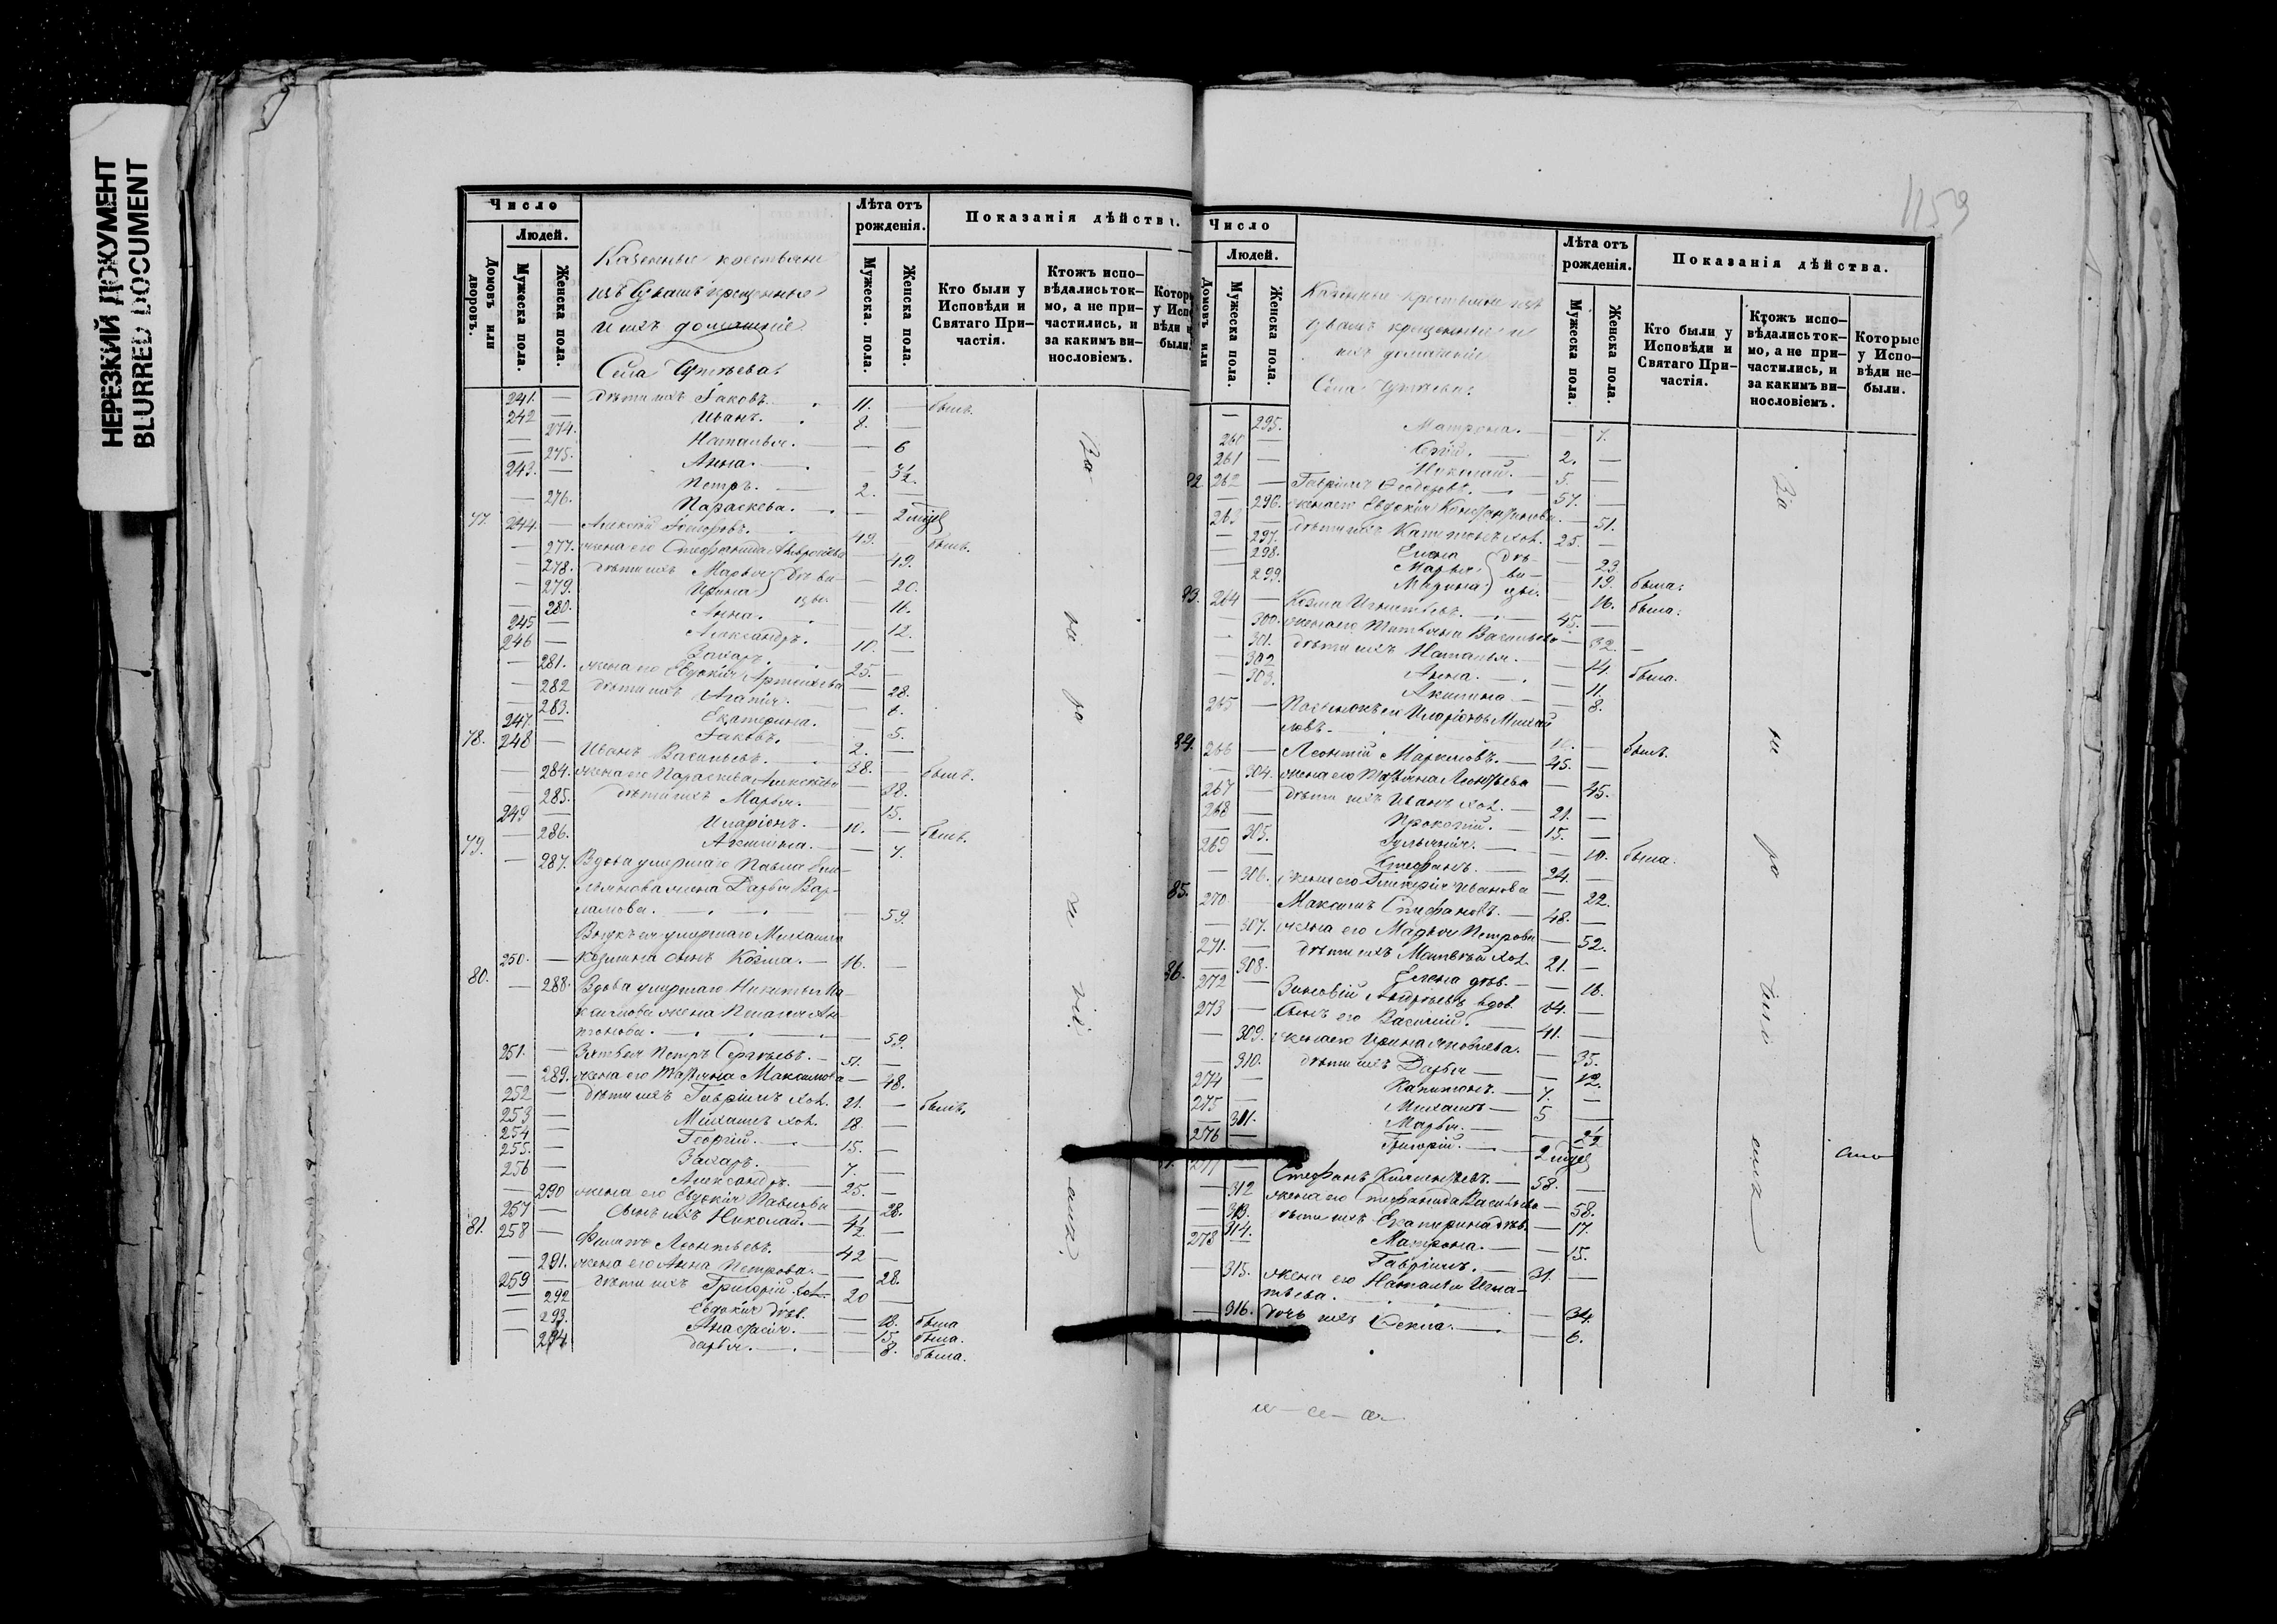 НЕРЕЗКИЙ ДОКУМЕНТ
BLURRED DOCUMENT
Число
Людей.
Домовъ или дворовъ.
Мужеска пола.
Женска пола.
Казенные крестьяне
изъ Чувашъ крещенные
и ихъ домашніе
Села
Лѣта отъ рожденія.
Мужеска. пола.
Женска пола.
Показанія дѣйства.
Кто были у Исповѣди и Святаго При-частія.
Ктожъ испо-вѣдались ток-мо, а не при-частились, и за какимъ ви-нословіемъ.
241. — дѣти ихъ Іаковъ. 11. — былъ.
242 — Иванъ. 8. —
— 274. Наталья. — 6
— 275. Анна. — 3½
243. — Петръ. 2. —
— 276. Параскева. — 2 нед
77. 244. — Алексій Ѳедоровъ. 49. — былъ.
— 277. жена его Стефанида — 49.
— 278. дѣти ихъ Марья — 20.
— 279. Ирина — 16.
— 280. Анна. — 12.
245 — Александръ. 10. —
246 — Захаръ. 25. —
— 281. жена его Евдокія Артемьева — 28.
— 282 дѣти ихъ Агапія. — 6.
— 283. Екатерина. — 5.
247. — Іаковъ. 2. —
78. 248 — Иванъ Васильевъ. 38. — былъ.
— 284. жена его Параскева Алексѣева — 38.
— 285. дѣти ихъ Марья. — 15.
249 — Иларіонъ. 10. — былъ.
— 286. Акилина. — 7.
79. — 287. Вдова умершаго Павла
жена Дарья Вар-
ламова. — 59.
Внукъ ея умершаго Михаила
250. — Козмина сынъ Козма. — 16. —
80. — 288. Вдова умершаго Никиты
жена Пелагея Ан-
тонова. — 59.
251. — Зять ея Петръ Сергѣевъ. — 51. —
— 289. жена его Татьяна Максимова — 48.
252 — дѣти ихъ Гавріилъ хол. 21. — былъ.
253 — Михаилъ хол. 18 —
254 — Георгій. 15. —
255. — Захаръ. 7. —
256 — Александръ. 25. —
— 290 жена его Евдокія Павлова — 28.
257 — Сынъ ихъ Николай. — 4½ —
81. 258 — Филипъ Леонтьевъ. 42 —
— 291. жена его Анна Петрова. — 28.
259 — дѣти ихъ Григорій хол. 20 —
— 292 Евдокія дѣв. — 18. была
— 293. Анастасія. — 15. была.
— 294 Дарья. — 8. была.
1159
Число
Людей.
Домовъ или
Мужеска пола.
Женска пола.
Казенные крестьяне изъ
Чувашъ крещенные и
ихъ домашніе
Села
Лѣта отъ рожденія.
Мужеска пола.
Женска пола.
Показанія дѣйства.
Кто были у Исповѣди и Святаго При-частія.
Ктожъ испо-вѣдались ток-мо, а не при-частились, и за какимъ ви-нословіемъ.
Которые у Испо-вѣди не-были.
— 295. Матрона. — 7.
260 — Сергій. 2. —
261 — Николай. 5. —
82. 262 — Гавріилъ Ѳеодоровъ. 57. —
— 296. жена его Евдокія Константинова. — 51.
263 — дѣти ихъ Капитонъ хол. 25. —
— 297. Елена — 23.
— 298. Марья — 19. была.
— 299. Марина — 16. была.
83. 264 — Козма Игнатьевъ. 45. —
— 300. жена его Татьяна Васильева — 32.
— 301. дѣти ихъ Наталья. — 14. была.
— 302 Анна. — 11.
— 303. Акилина. — 8.
265 — Иларіонъ Михай
ловъ. — былъ.
84. 266 — Леонтій Маркеловъ. 45. —
— 304. жена его Татьяна Леонтьева — 45.
267 — дѣти ихъ Иванъ хол. — 21. —
268 — Прокопій. — 15. —
— 305. Іуліанія. — 10. была.
269 — Стефанъ. 24. —
— 306. жена его Гликерія Иванова — 22.
85. 270 — Максимъ Стефановъ. — 48. —
— 307. жена его Марья Петрова — 52.
271. — дѣти ихъ Матвѣй хол. 21. —
— 308. Елена дѣв. — 18.
86. 272 — Зиновій Андреевъ вдов. 64. —
273 — Сынъ его Василій. 41. —
— 309. жена его Ирина Яковлева. — 35.
— 310. дѣти ихъ Дарья — 12.
274 — Капитонъ. — 7. —
275 — Михаилъ — 5 —
— 311. Марья. — 2½
276 — Григорій. — 2 нед
277 — Стефанъ Климентьевъ. — 58. —
— 312 жена его Стефанида Васильева — 58.
— 313. дѣти ихъ Екатерина дѣв. — 17.
— 314. Матрона. — 15.
278 — Гавріилъ. — 31. —
— 315. жена его Наталья Игна-
тьева. — 34.
— 316. дочь ихъ Ѳекла. — 6.